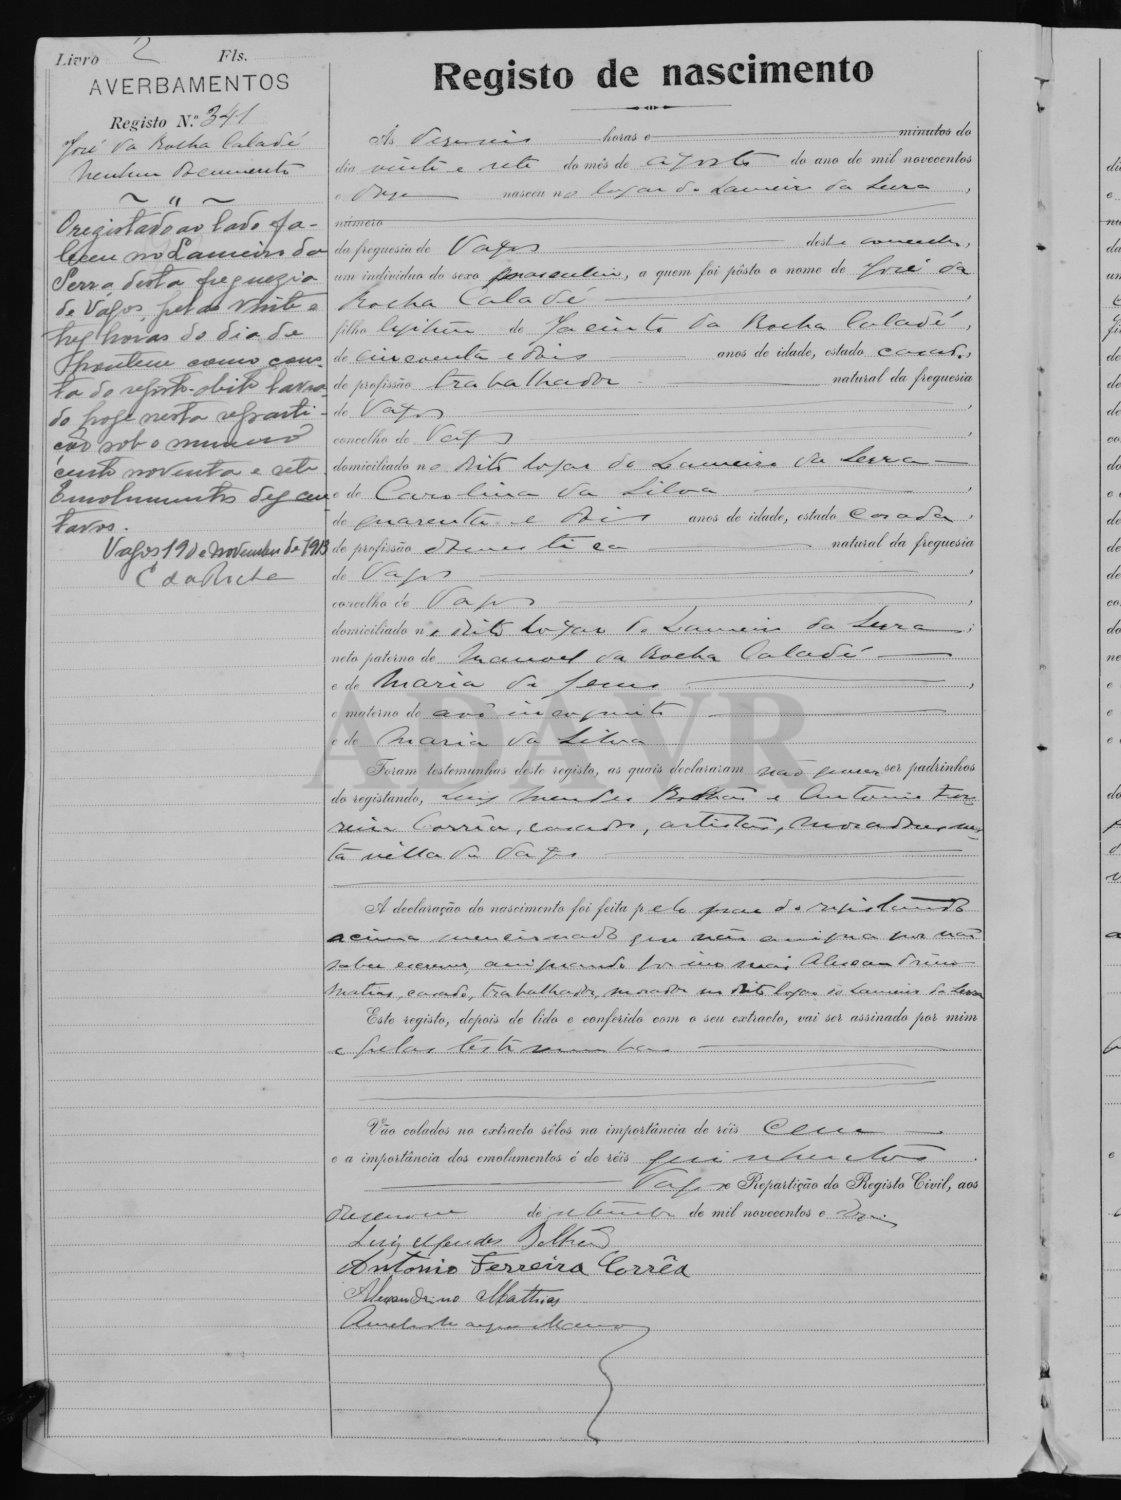 Livro 2 Fls.
AVERBAMENTOS
Registo N.º 341
José da Rocha Caladé
Nenhum documento
~ " ~
O registado ao lado fa-
leceu no Lameiro da
Serra, desta freguezia
de Vagos, pelas vinte e
tres horas do dia de
hontem como cons-
ta do registo-obito lavra-
do hoje nesta reparti-
ção sob o numero
cento noventa e sete.
Emolumentos dez cen-
tavos.
Vagos 19 de Novembro de 1913
Registo de nascimento
Às dezeseis horas e minutos do
dia vinte e sete do mês de agosto do ano de mil novecentos
e doze nasceu no logar do Lameiro da Serra,
número
da freguesia de Vagos deste concelho,
um indivíduo do sexo masculino, a quem foi pôsto o nome de José da
Rocha Caladé,
filho legitimo de Jacinto da Rocha Caladé,
de cincoenta e dois anos de idade, estado casado,
de profissão trabalhador natural da freguesia
de Vagos,
concelho de Vagos,
domiciliado no dito logar do Lameiro da Serra
e de Carolina da Silva,
de quarenta e dois anos de idade, estado casada,
de profissão domestica natural da freguesia
de Vagos,
concelho de Vagos,
domiciliado no dito logar do Lameiro da Serra;
neto paterno de Manoel da Rocha Caladé
e de Maria de Jesus,
e materno de avô incognito
e de Maria da Silva
Foram testemunhas deste registo, as quais declararam não querer ser padrinhos
do registando, Luiz Mendes Bolhão e Antonio Fer-
reira Corrêa, casados, artistas, moradores nes-
ta villa de Vagos
A declaração do nascimento foi feita pelo pae do registando
acima mencionado que não assigna por não
saber escrever, assignando por seu Alexandrino
Matias, casado, trabalhador, morador no dito logar do Lameiro da Serra
Este registo, depois de lido e conferido com o seu extracto, vai ser assinado por mim
e pelas testemunhas
Vão colados no extracto sêlos na importância de réis cem
e a importância dos emolumentos é de réis quinhentos.
Vagos e Repartição do Registo Civil, aos
dezenove de setembro de mil novecentos e doze
Luiz Mendes Bolhão
Antonio Ferreira Corrêa
Alexandrino Mathias
ADAVR